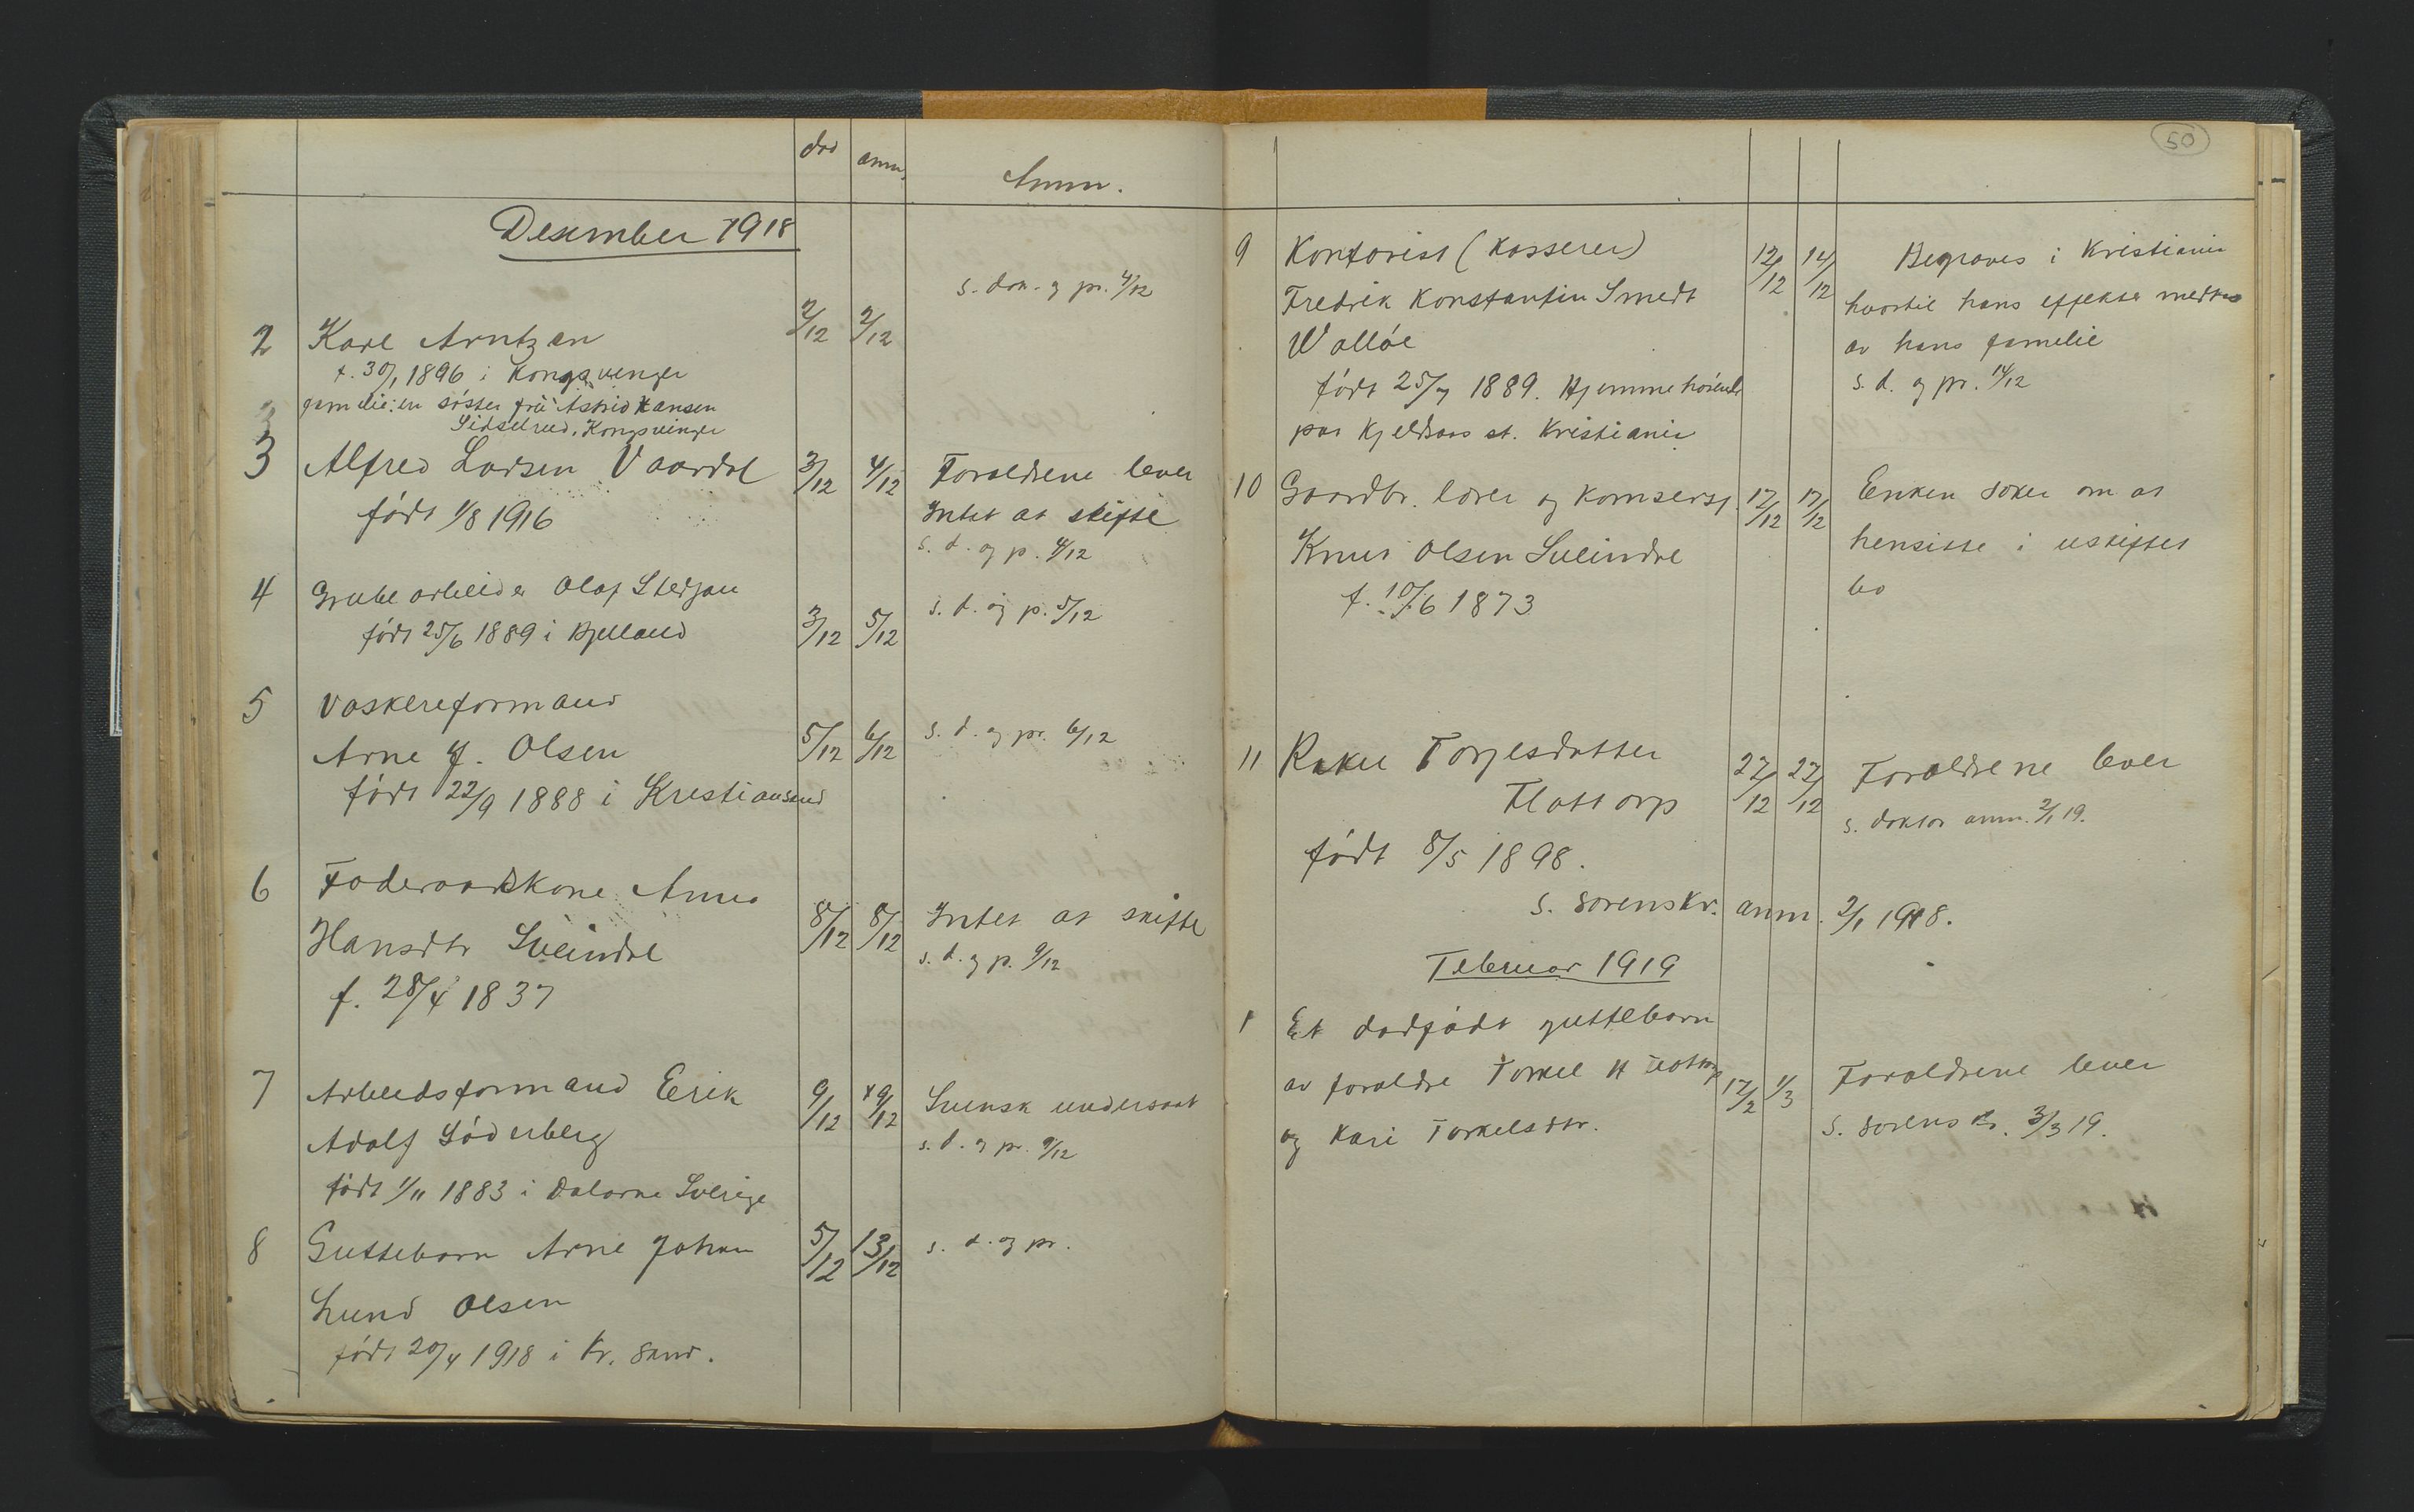 død anm. Anm.
Desember 1918
s. dok. og pr. 4/12
2 Karl Arntzen 2/12 2/12
f. 30/1 1896 i Kongsvinger
familie: en søster frk Astrid Hansen
Sidselrud, Kongsvinger
3 Alfred Larsen Vaardal 3/12 4/12 Foraldrene lever
født 1/8 1916 Intet at skifte
s. d. og p. 4/12
4 Grubearbeider Olaf 3/12 5/12 s. d. og p. 5/12
født 25/6 1889 i Bjelland
5 Vaskereformand
Arne J. Olsen 5/12 6/12 s. d. og pr. 6/12
født 22/9 1888 i Kristiansand
6 Føderaadskone Anna
Hansdtr Sveindal 8/12 8/12 Intet at skifte
f. 28/4 1837 s. d. og p. 9/12
7 Arbeidsformand Erik 9/12 9/12 Svensk undersaat
Adolf Söderberg s. d. og pr. 9/12
født 1/11 1883 i Dalarne Sverige
8 Guttebarn Arne Johan 5/12 13/12 s. d. og pr.
Lund Olsen
født 20/4 1918 i Kr. sand.
50
9 Kontorist (Kasserer) 12/12 14/12 Begraves i Kristiania
Fredrik Konstantin Smedt hvortil hans effekter medtas
Walløe av hans familie
født 25/7 1889. Hjemmehørende s. d. og pr. 14/12
paa Kjelsaas st. Kristiania
10 Gaardbr. lærer og 17/12 17/12 Enken søker om at
Knut Olsen Sveindal hensitte i uskiftet
f. 10/6 1873 bo
11 Rakel Torjesdatter 27/12 27/12 Foraldrene lever
Flottorp s. doktor anm. 2/1 19.
født 8/5 1898.
s. sorenskr. anm. 2/1 1918.
Februar 1919
1 Et dødfødt guttebarn
av foraldre Torkel H Flottorp 17/2 1/3 Foraldrene lever
og Kari Torkelsdtr. s. sorenskr. 3/3 19.